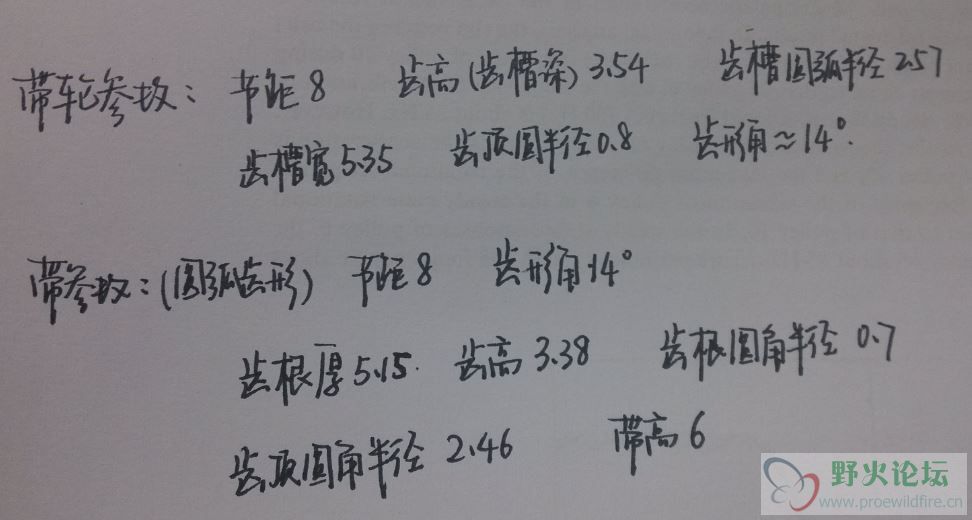 带轮参数：节距8 齿高(齿槽深)3.54 齿槽圆弧半径2.57
齿槽宽5.35 齿顶圆半径0.8 齿形角≈14°.
带参数：(圆弧齿形) 节距8 齿形角14°
齿根厚5.15. 齿高3.38 齿根圆角半径0.7
齿顶圆角半径2.46 带高6
野火论坛
www.proewildfire.cn